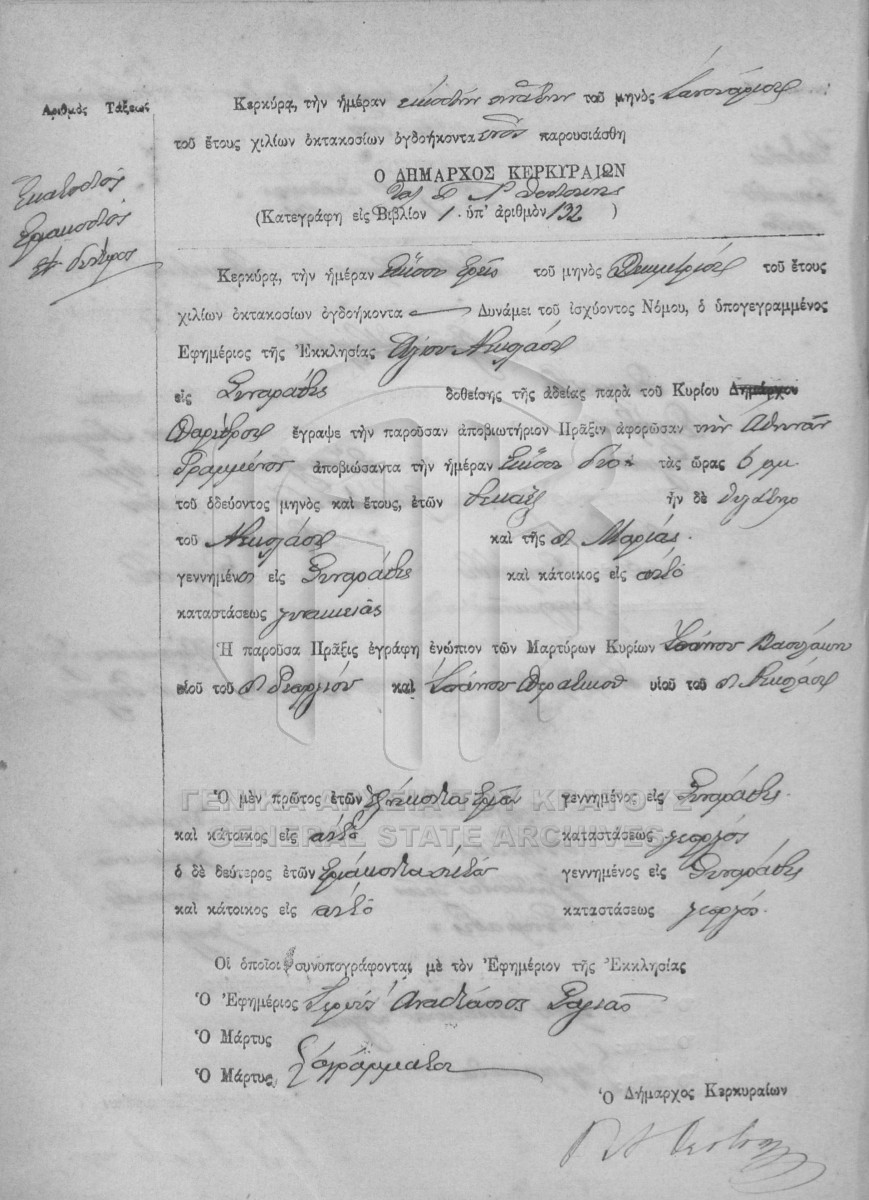 Ἀριθμὸς Τάξεως
Ἑκατοστὸς
Τριακοστὸς
Δεύτερος
Κερκύρᾳ, τὴν ἡμέραν εἰκοστὴν ἐνάτην τοῦ μηνὸς Ἰανουάριος
τοῦ ἔτους χιλίων ὀκτακοσίων ὀγδοήκοντα ἑνὸς παρουσιάσθη
Ο ΔΗΜΑΡΧΟΣ ΚΕΡΚΥΡΑΙΩΝ
(Κατεγράφη εἰς Βιβλίον 1. ὑπ' ἀριθμὸν 132)
Κερκύρᾳ, τὴν ἡμέραν Εἴκοσι τρεῖς τοῦ μηνὸς Δεκεμβρίου τοῦ ἔτους
χιλίων ὀκτακοσίων ὀγδοήκοντα Δυνάμει τοῦ ἰσχύοντος Νόμου, ὁ ὑπογεγραμμένος
Ἐφημέριος τῆς Ἐκκλησίας Ἁγίου Νικολάου
εἰς Συναράδες δοθείσης τῆς ἀδείας παρὰ τοῦ Κυρίου Δημάρχου
Παρέδρου ἔγραψε τὴν παροῦσαν ἀποβιωτήριον Πρᾶξιν ἀφορῶσαν τὴν Ἀθηνᾶν
Γραμμένου ἀποβιώσαντα τὴν ἡμέραν Εἴκοσι δύο τὰς ὥρας 6 μμ
τοῦ ὁδεύοντος μηνὸς καὶ ἔτους, ἐτῶν δεκαὲξ ἦν δὲ θυγάτηρ
τοῦ Νικολάου καὶ τῆς Μαρίας.
γεννημένον εἰς Συναράδες καὶ κάτοικος εἰς αὐτὸ
καταστάσεως γυναικείας
Ἡ παροῦσα Πρᾶξις ἐγράφη ἐνώπιον τῶν Μαρτύρων Κυρίων Σπύρου Βασιλάκη
υἱοῦ τοῦ Γεωργίου καὶ Σπύρου υἱοῦ τοῦ Νικολάου
ΓΕΝΙΚΑ ΑΡΧΕΙΑ ΤΟΥ ΚΡΑΤΟΥΣ
GENERAL STATE ARCHIVES
Ὁ μὲν πρῶτος ἐτῶν ἑξήκοντα τριῶν γεννημένος εἰς Συναράδες
καὶ κάτοικος εἰς αὐτὸ καταστάσεως γεωργὸς
ὁ δὲ δεύτερος ἐτῶν τριάκοντα ὀκτὼ γεννημένος εἰς Συναράδες
καὶ κάτοικος εἰς αὐτὸ καταστάσεως γεωργός.
Οἱ ὁποῖοι συνυπογράφονται μὲ τὸν Ἐφημέριον τῆς Ἐκκλησίας
Ὁ Ἐφημέριος Ἱερεὺς Ἀναστάσιος
Ὁ Μάρτυς
Ὁ Μάρτυς Ἀγράμματοι
Ὁ Δήμαρχος Κερκυραίων